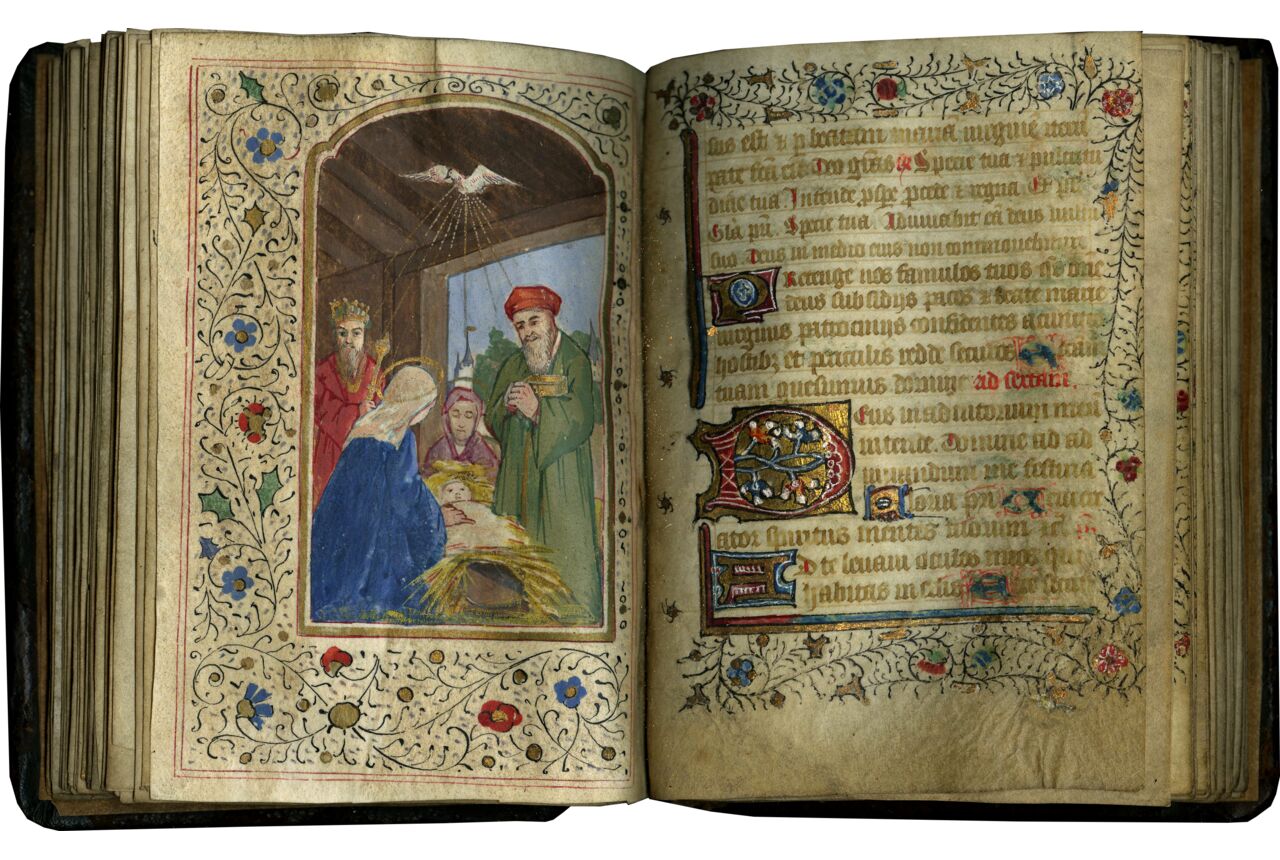 sus est & p beatam maria uirginē iteru
pate fca est Deo gras Specie tua & pulcritu
dine tua. Intende pspe & regna.
Gla pri. Specie tua. Adiuuabit eā deus uultu
suo. Deus in medio eius non commouebitur.
Protege nos famulos tuos dne
deus subsidijs pacis & beate marie
uirginis patrocinijs confidentes a cunctis
hostib; et periculis redde securos
tuam quesumus domine ad sextam.
Deus in adiutorium meu
intende. Domine ad ad
iuuandum me festina
Gloria pri
ator spiritus mentes tuorum
Ad te leuaui oculos meos qui
habitas in